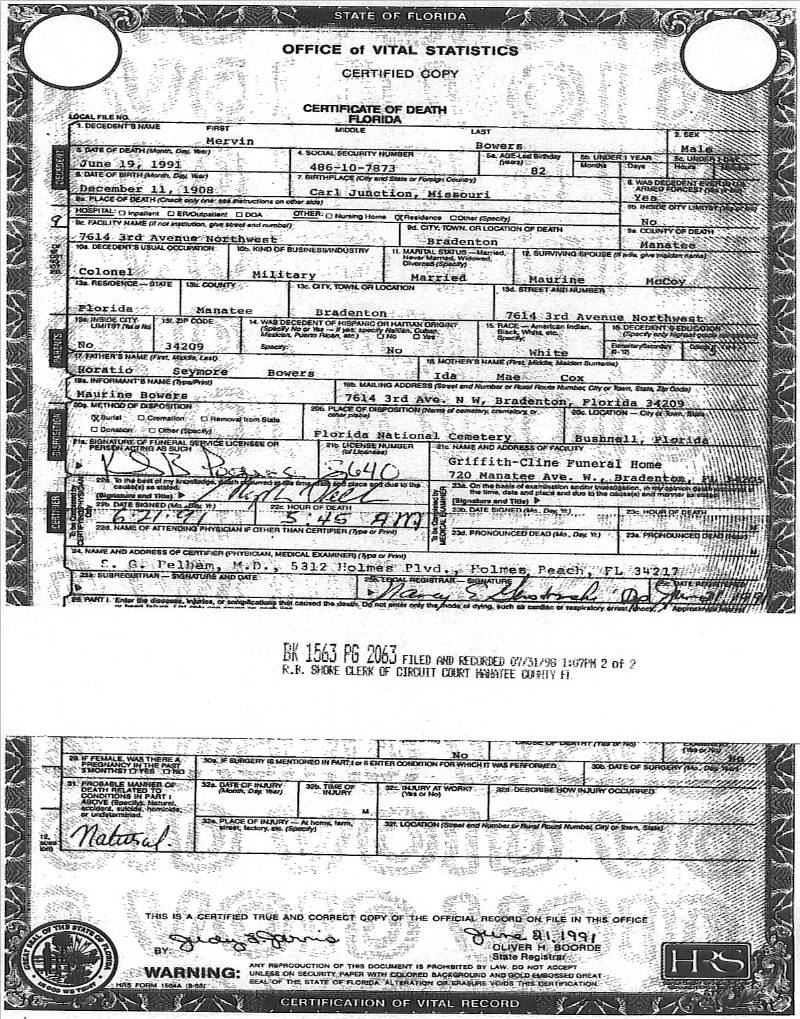 STATE OF FLORIDA
OFFICE of VITAL STATISTICS
CERTIFIED COPY
CERTIFICATE OF DEATH
FLORIDA
LOCAL FILE NO.
1. DECEDENT'S NAME FIRST MIDDLE LAST 2. SEX
Mervin Bowers Male
3. DATE OF DEATH (Month, Day, Year) 4. SOCIAL SECURITY NUMBER 5a. AGE-Last Birthday (years) 5b. UNDER 1 YEAR Months Days 5c. UNDER 1 DAY Hours
June 19, 1991 486-10-7873 82
6. DATE OF BIRTH (Month, Day, Year) 7. BIRTHPLACE (City and State or Foreign Country) 8. WAS DECEDENT EVER IN U.S. ARMED FORCES? (Yes or No)
December 11, 1908 Carl Junction, Missouri Yes
9a. PLACE OF DEATH (Check only one: see instructions on other side) 9b. INSIDE CITY LIMITS?
HOSPITAL: Inpatient ER/Outpatient DOA OTHER: Nursing Home Residence Other (Specify) No
9c. FACILITY NAME (If not institution, give street and number) 9d. CITY, TOWN, OR LOCATION OF DEATH 9e. COUNTY OF DEATH
7614 3rd Avenue Northwest Bradenton Manatee
10a. DECEDENT'S USUAL OCCUPATION 10b. KIND OF BUSINESS/INDUSTRY 11. MARITAL STATUS — Married, Never Married, Widowed, Divorced (Specify) 12. SURVIVING SPOUSE (If wife, give maiden name)
Colonel Military Married Maurine McCoy
13a. RESIDENCE — STATE 13b. COUNTY 13c. CITY, TOWN, OR LOCATION 13d. STREET AND NUMBER
Florida Manatee Bradenton 7614 3rd Avenue Northwest
13e. INSIDE CITY LIMITS? (Yes or No) 13f. ZIP CODE 14. WAS DECEDENT OF HISPANIC OR HAITIAN ORIGIN? (Specify No or Yes — If yes, specify Haitian, Cuban, Mexican, Puerto Rican, etc.) No Yes Specify: 15. RACE — American Indian, Black, White, etc. Specify: 16. DECEDENT'S EDUCATION
No 34209 No White
17. FATHER'S NAME (First, Middle, Last) 18. MOTHER'S NAME (First, Middle, Maiden Surname)
Horatio Seymore Bowers Ida Mae Cox
19a. INFORMANT'S NAME (Type/Print) 19b. MAILING ADDRESS (Street and Number or Rural Route Number, City or Town, State, Zip Code)
Maurine Bowers 7614 3rd Ave. N W, Bradenton, Florida 34209
20a. METHOD OF DISPOSITION 20b. PLACE OF DISPOSITION (Name of cemetery, crematory, or other place) 20c. LOCATION — City or Town, State
Burial Cremation Removal from State
Donation Other (Specify) Florida National Cemetery Bushnell, Florida
21a. SIGNATURE OF FUNERAL SERVICE LICENSEE OR PERSON ACTING AS SUCH 21b. LICENSE NUMBER (of Licensee) 21c. NAME AND ADDRESS OF FACILITY
Griffith-Cline Funeral Home
720 Manatee Ave. W., Bradenton, FL 34205
22a. To the best of my knowledge, death occurred at the time, date and place and due to the cause(s) as stated. (Signature and Title)
23a. On the basis of examination and/or investigation, in my opinion death occurred at the time, date and place and due to the cause(s) and manner as stated. (Signature and Title)
22b. DATE SIGNED (Mo., Day, Yr.) 22c. HOUR OF DEATH 23b. DATE SIGNED (Mo., Day, Yr.) 23c. HOUR OF DEATH
5:45 AM
22d. NAME OF ATTENDING PHYSICIAN IF OTHER THAN CERTIFIER (Type or Print) 23d. PRONOUNCED DEAD (Mo., Day, Yr.) 23e. PRONOUNCED DEAD
24. NAME AND ADDRESS OF CERTIFIER (PHYSICIAN, MEDICAL EXAMINER) (Type or Print)
S. G. Pelham, M.D., 5312 Holmes Blvd., Holmes Beach, FL 34217
25a. SUBREGISTRAR — SIGNATURE AND DATE 25b. LOCAL REGISTRAR — SIGNATURE 25c. DATE REGISTERED
26. PART I. Enter the diseases, injuries, or complications that caused the death. Do not enter only the mode of dying, such as cardiac or respiratory arrest
BK 1563 PG 2063 FILED AND RECORDED 07/31/98 1:07PM 2 of 2
R.B. SHORE CLERK OF CIRCUIT COURT MANATEE COUNTY FL
No No
29. IF FEMALE, WAS THERE A PREGNANCY IN THE PAST 3 MONTHS? YES NO 30a. IF SURGERY IS MENTIONED IN PART I or II ENTER CONDITION FOR WHICH IT WAS PERFORMED. 30b. DATE OF SURGERY (Mo., Day, Yr.)
31. PROBABLE MANNER OF DEATH RELATED TO CONDITIONS IN PART I ABOVE (Specify): Natural, accident, suicide, homicide, or undetermined. 32a. DATE OF INJURY (Month, Day, Year) 32b. TIME OF INJURY M 32c. INJURY AT WORK? (Yes or No) 32d. DESCRIBE HOW INJURY OCCURRED
Natural 32e. PLACE OF INJURY — At home, farm, street, factory, etc. (Specify) 32f. LOCATION (Street and Number or Rural Route Number, City or Town, State)
THIS IS A CERTIFIED TRUE AND CORRECT COPY OF THE OFFICIAL RECORD ON FILE IN THIS OFFICE
BY Judy S. Jarvis June 21, 1991
OLIVER H. BOORDE
State Registrar
WARNING: ANY REPRODUCTION OF THIS DOCUMENT IS PROHIBITED BY LAW. DO NOT ACCEPT
UNLESS ON SECURITY PAPER WITH COLORED BACKGROUND AND GOLD EMBOSSED GREAT
SEAL OF THE STATE OF FLORIDA. ALTERATION OR ERASURE VOIDS THIS CERTIFICATION.
HRS FORM 1564A
HRS
GREAT SEAL OF THE STATE OF FLORIDA
IN GOD WE TRUST
CERTIFICATION OF VITAL RECORD